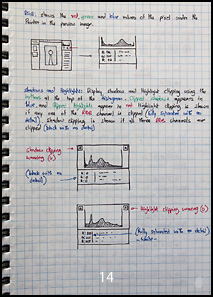 RGB: shows the red, green and blue values of the pixel under the
Pointer in the preview image.
Shadows and Highlights: Display shadow and highlight clipping using the
buttons at the top of the Histogram. Clipped shadows appears in
blue, and clipped highlights appears in red. Highlight clipping is shown
if any one of the RGB channel is clipped (fully saturated with no
detail). Shadow clipping is shown if all three RGB channels are
clipped (black with no detail)
Shadow clipping
warning (U)
(black with no
detail)
Highlight clipping warning (O)
(fully saturated with no detail)
14